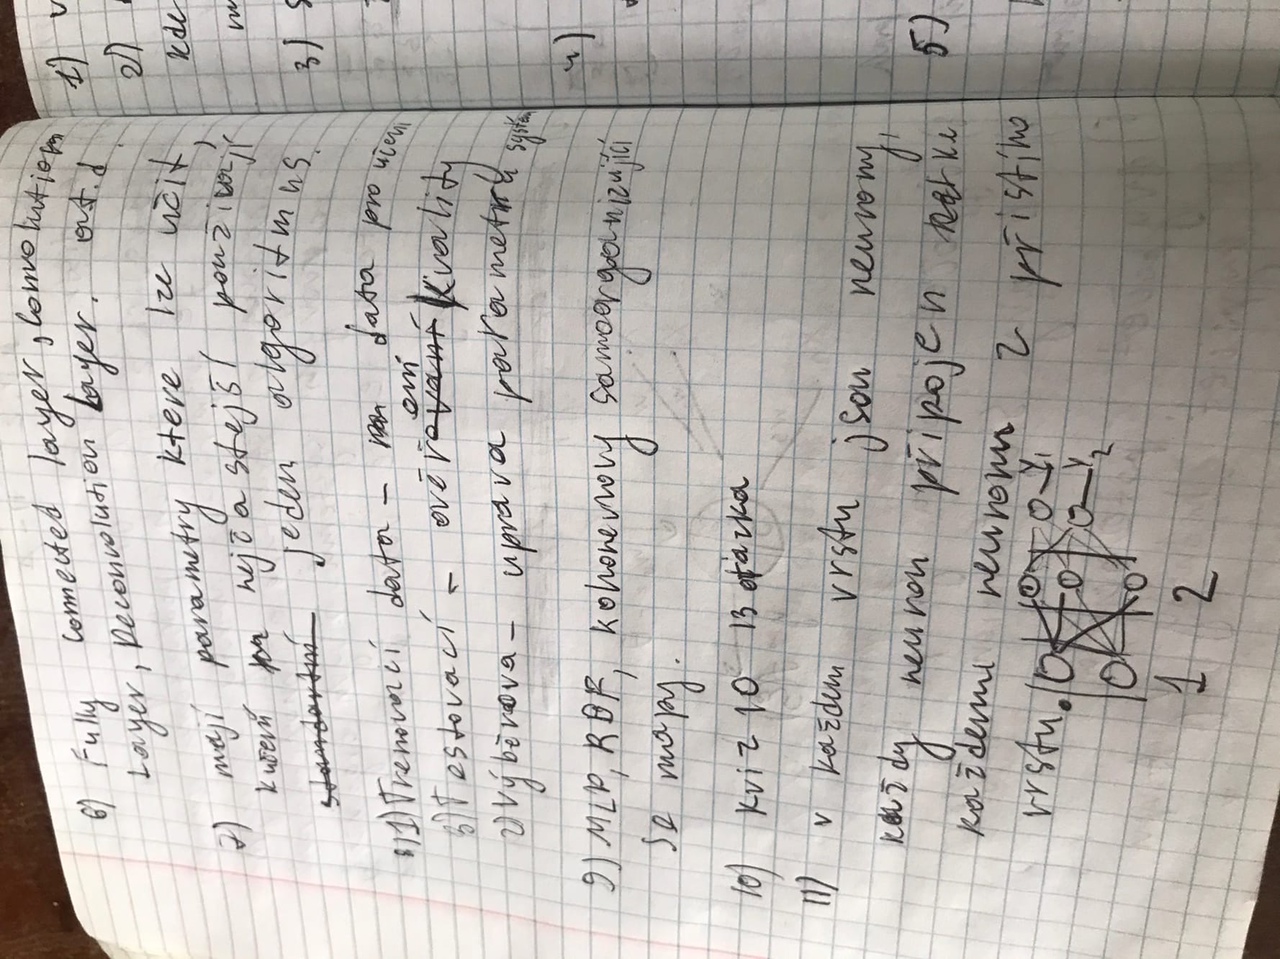 6) Fully connected layer, convolution
Layer, Deconvolution Layer. out.d.
7) mají parametry ktere lze učit,
kučení nejčastejší používájí
standartní jeden algoritmus.
8) 1) Trenovací data – data pro učení
3) Testovací – ověření kvality
2) Výběrova – uprava parametrů systém
9) MLP, RBF, kohonenovy samoorganizující
se mapy.
10) kviz 10 13 otázka
11) v každem vrstu jsou neurony,
každy neuron připojen
každemu neuronu z přistiho
vrstu.
y1
y2
1 2
1)
2)
kde
3)
4)
5)